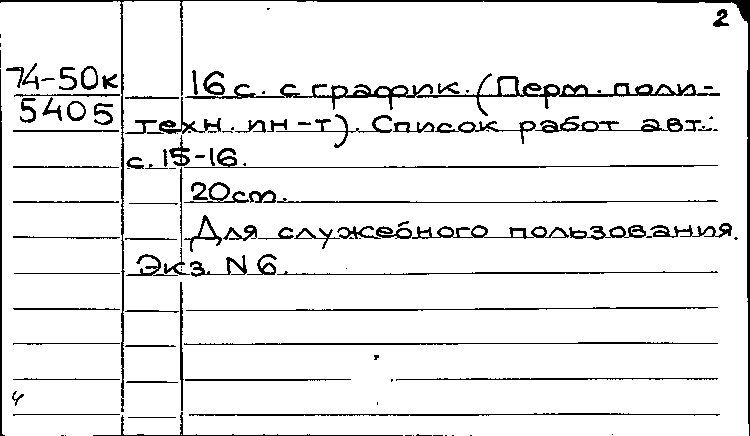 2
74-50к
5405
16 с. с график. (Перм. поли-
техн. ин-т). Список работ авт.:
с. 15-16.
20 см.
Для служебного пользования.
Экз. N 6.